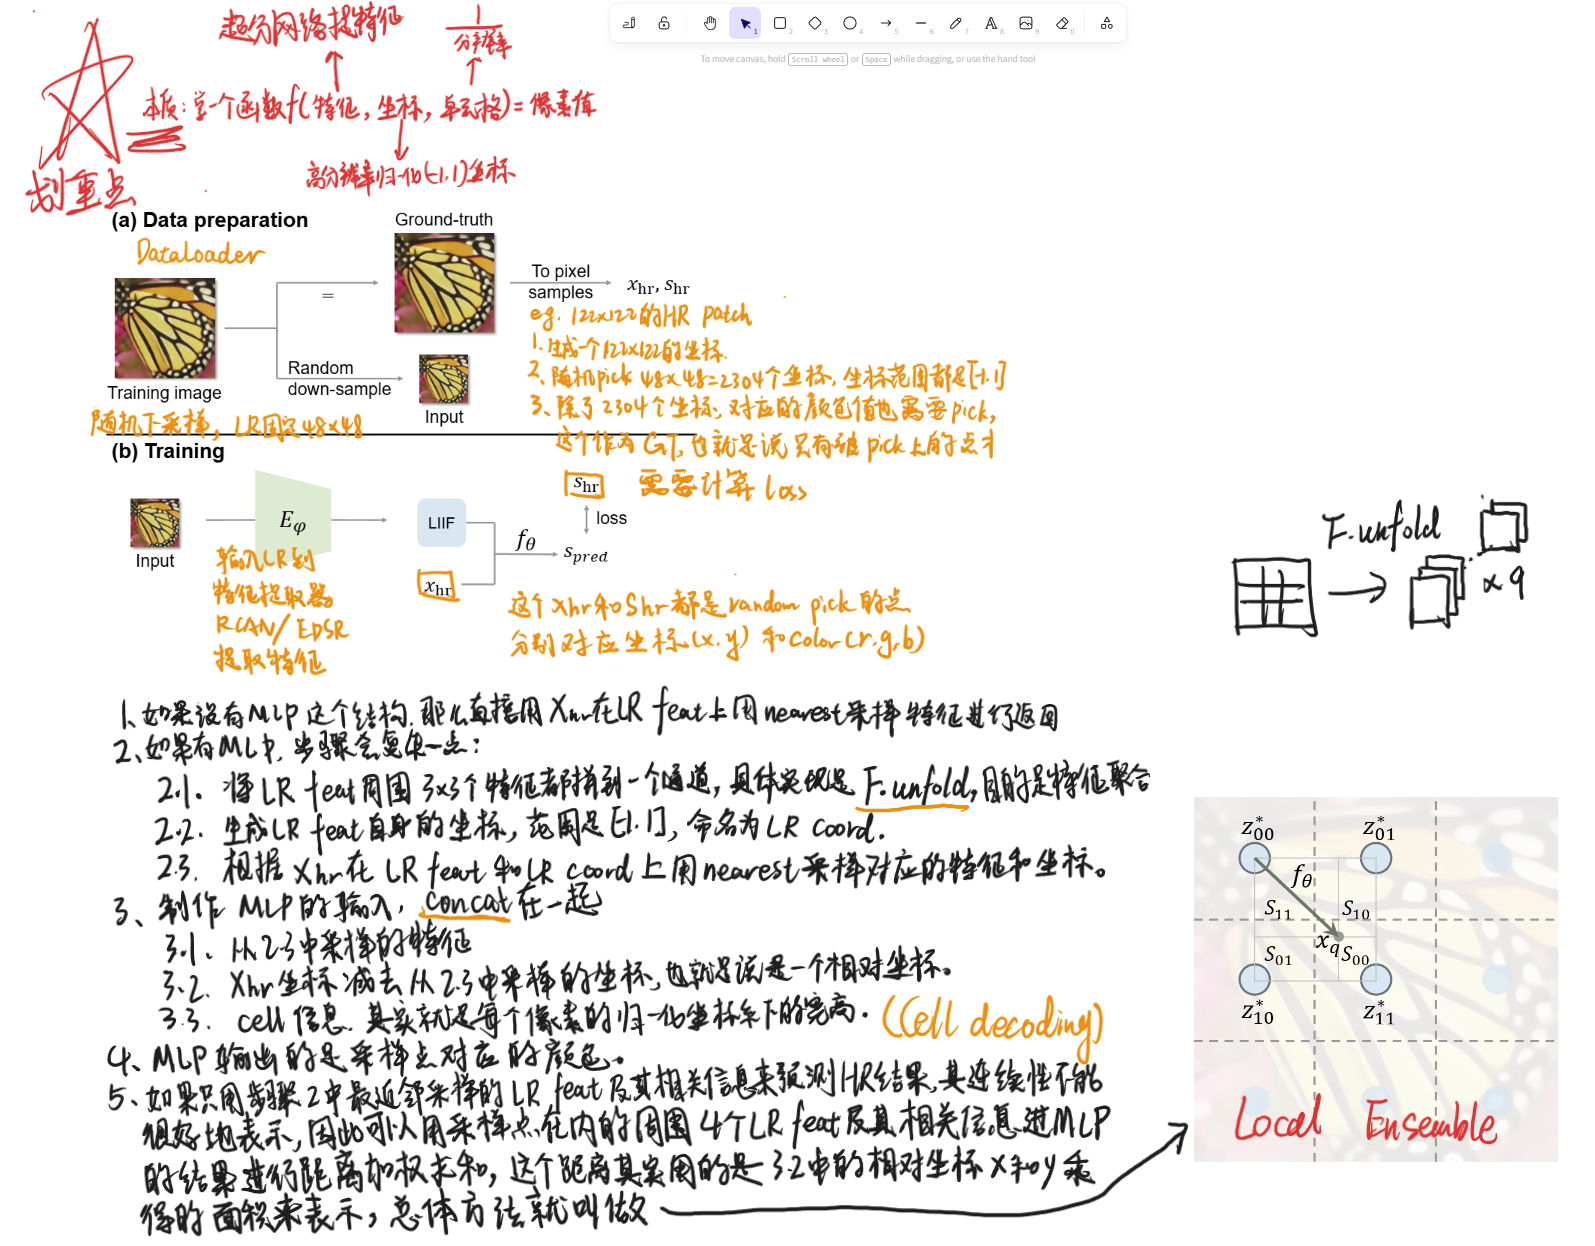 To move canvas, hold Scroll wheel or Space while dragging, or use the hand tool
超分网络提特征
1
分辨率
本质:学一个函数f(特征,坐标,单元格)=像素值
高分辨率归一化[-1,1]坐标
划重点
(a) Data preparation
DataLoader
Ground-truth
=
To pixel samples
x_hr, s_hr
Random down-sample
Training image
Input
随机下采样,LR固定48x48
eg. 122x122的HR patch
1.生成一个122x122的坐标.
2、随机pick 48x48=2304个坐标,坐标范围都是[-1,1]
3、除了2304个坐标,对应的颜色值也需要pick,
这个作为GT,也就是说只有被pick上的点才
需要计算loss
(b) Training
s_hr
loss
E_φ
LIIF
f_θ
s_pred
Input
x_hr
输入LR到
特征提取器
RCAN/EDSR
提取特征
这个Xhr和Shr都是random pick的点
分别对应坐标(x.y)和color(r.g.b)
F.unfold
x9
1、如果没有MLP这个结构,那么直接用Xhr在LR feat上用nearest采样特征进行返回
2、如果有MLP,步骤会复杂一点:
2.1. 将LR feat周围3x3个特征都拼到一个通道,具体实现是F.unfold,目的是特征聚合
2.2. 生成LR feat自身的坐标,范围是[-1.1],命名为LR coord.
2.3. 根据Xhr在LR feat和LR coord上用nearest采样对应的特征和坐标。
3、制作MLP的输入,concat在一起
3.1. 从2.3中采样的特征
3.2. Xhr坐标减去从2.3中采样的坐标,也就是说是一个相对坐标。
3.3. cell信息.其实就是每个像素的归一化坐标系下的宽高. (Cell decoding)
4、MLP输出的是采样点对应的颜色。
5、如果只用步骤2中最近邻采样的LR feat及其相关信息来预测HR结果,其连续性不能
很好地表示,因此可以用采样点在内的周围4个LR feat及其相关信息进MLP
的结果进行距离加权求和,这个距离其实用的是3.2中的相对坐标x和y乘
得的面积来表示,总体方法就叫做
z*_00
z*_01
f_θ
S_11
S_10
x_q
S_01
S_00
z*_10
z*_11
Local Ensemble